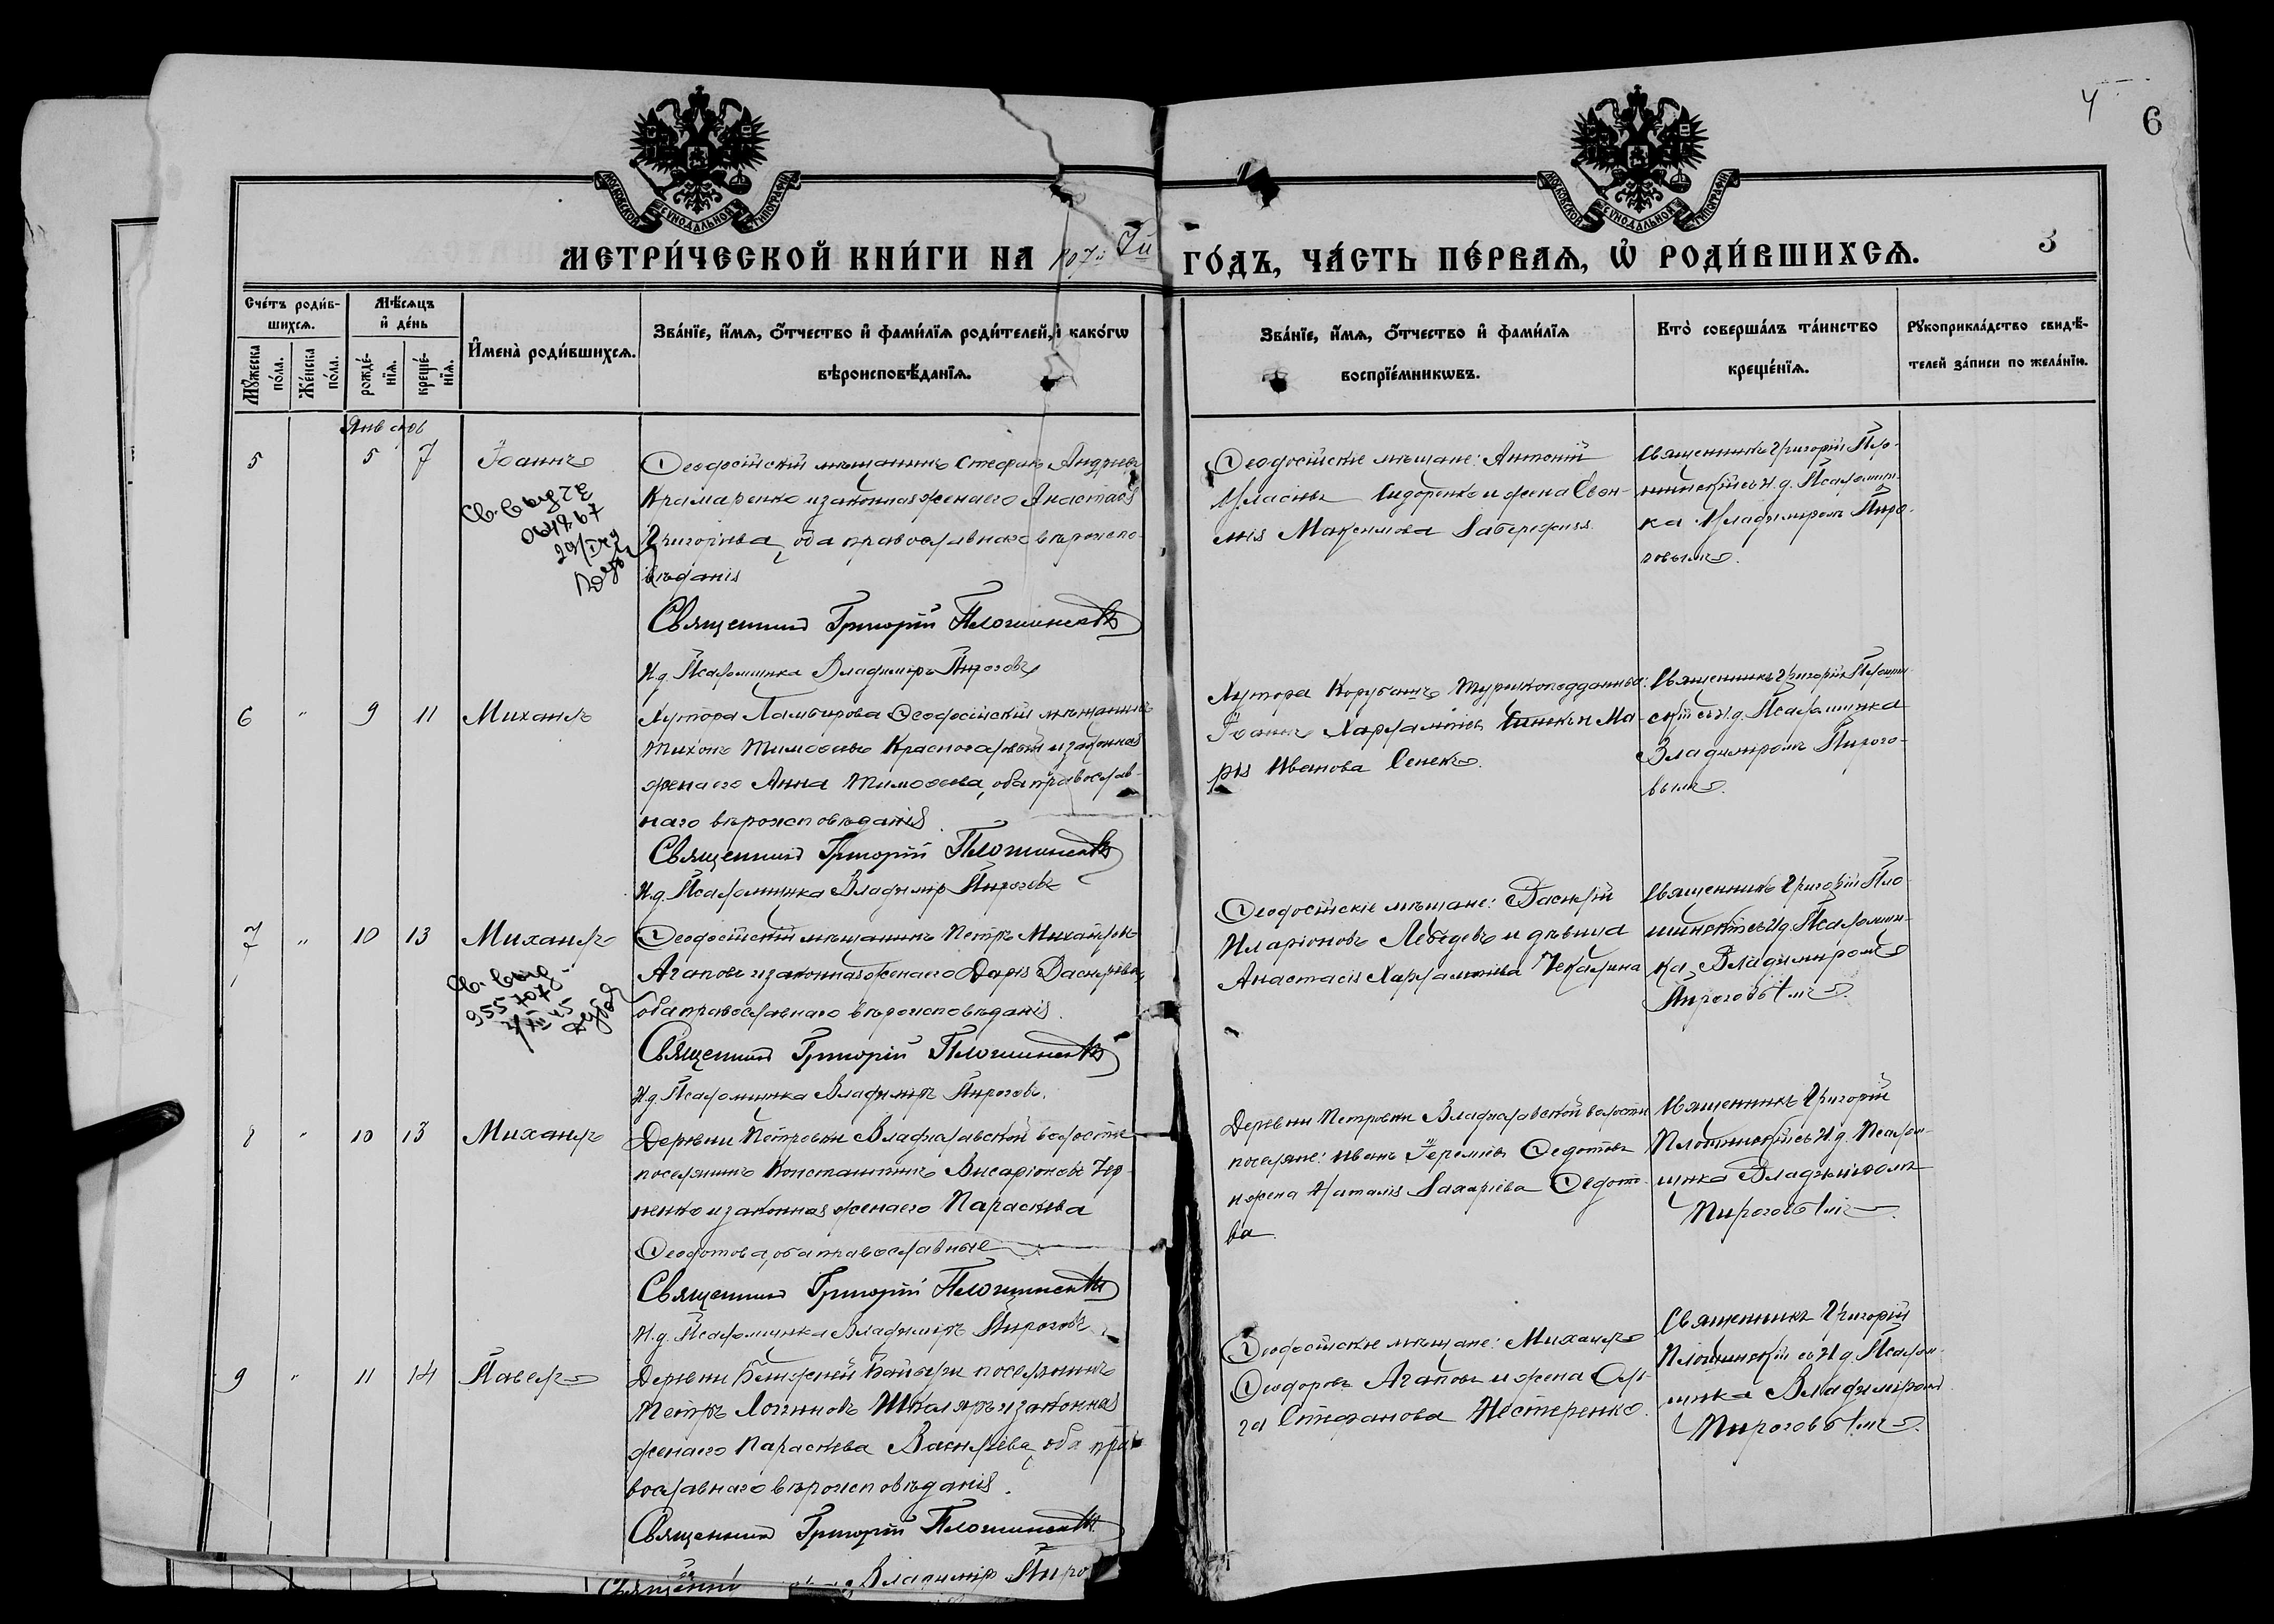 4
6
МОСКОВСКОЙ СѴНОДАЛЬНОЙ ТИПОГРАФІИ
МОСКОВСКОЙ СѴНОДАЛЬНОЙ ТИПОГРАФІИ
МЕТРИ́ЧЕСКОЙ КНИ́ГИ НА 1907й ГО́ДЪ, ЧА́СТЬ ПЕ́РВАѦ, Ѡ҆ РОДИ́ВШИХСѦ.
3
Сче́тъ роди́в-
шихсѧ.
Мꙋ́жеска
по́ла.
Же́нска
по́ла.
Мѣ́сѧцъ
и҆ де́нь
рожде́-
нїѧ.
креще́-
нїѧ.
И҆мена̀ роди́вшихсѧ.
Зва́нїе, и҆́мѧ, ѻ҆́тчество и҆ фами́лїѧ роди́телей, и҆ како́гѡ
вѣроисповѣ́данїѧ.
Зва́нїе, и҆́мѧ, ѻ҆́тчество и҆ фами́лїѧ
воспрїе́мникѡвъ.
Кто̀ соверша́лъ та́инство
креще́нїѧ.
Рꙋкоприкла́дство свидѣ́-
телей за́писи по жела́нїю.
Янв
5
5 7
Іоаннъ
Св. выд
Ѳеодосійскій мѣщанинъ Стефанъ Андреевъ
Крамаренко и законная жена его Анастасія
Григоріева, оба православнаго вѣроиспо-
вѣданія
Священникъ Григорій Плошинскій
И.д. Псаломщика Владиміръ Пироговъ
Ѳеодосійскіе мѣщане: Антоній
Власіевъ Сидоренко и жена Евѳи-
мія Максимова Забережная.
Священникъ Григорій Пло-
шинскій съ И.д. Псаломщи-
ка Владиміромъ Пиро-
говымъ.
6 " 9 11
Михаилъ
Хутора Ламбирова Ѳеодосійскій мѣщанинъ
Тихонъ Тимоѳеевъ Красноголовый и законная
жена его Анна Тимоѳеева, оба православ-
наго вѣроисповѣданія.
Священникъ Григорій Плошинскій
И.д. Псаломщика Владиміръ Пироговъ
Хутора Корубанъ Турецкоподданные:
Іоаннъ Харлампіевъ и Ма-
рія Иванова Сенекъ.
Священникъ Григорій Плошин-
скій съ И.д. Псаломщика
Владиміромъ Пирого-
вымъ.
7 " 10 13
Михаилъ
Св. выд.
955707
Ѳеодосійскій мѣщанинъ Петръ Михайловъ
Агаповъ и законная жена его Дарія Васильева,
оба православнаго вѣроисповѣданія.
Священникъ Григорій Плошинскій
И.д. Псаломщика Владиміръ Пироговъ.
Ѳеодосійскіе мѣщане: Василій
Иларіоновъ Лебедевъ и дѣвица
Анастасія Харлампіева Чекалина
Священникъ Григорій Пло-
шинскій съ И.д. Псаломщи-
ка Владиміромъ
Пироговымъ.
8 " 10 13
Михаилъ
Деревни Петровки Владиславской волости
поселянинъ Константинъ Висаріоновъ Чер-
ненко и законная жена его Параскева
Ѳеодотова, оба православные
Священникъ Григорій Плошинскій
И.д. Псаломщика Владиміръ Пироговъ
Деревни Петровки Владиславской волости
поселяне: Иванъ Іереміевъ Ѳедотовъ
и жена Наталія Захаріева Ѳедото-
ва.
Священникъ Григорій
Плошинскій съ И.д. Псалом-
щика Владиміромъ
Пироговымъ.
9 " 11 14
Павелъ
Деревни Ближней Байбуги поселянинъ
Петръ Логиновъ Школяръ и законная
жена его Параскева Васильева, оба пра-
вославнаго вѣроисповѣданія.
Священникъ Григорій Плошинскій
Владиміръ Пиро
Ѳеодосійскіе мѣщане: Михаилъ
Ѳеодоровъ Агаповъ и жена Оль-
га Стефанова Нестеренко.
Священникъ Григорій
Плошинскій съ И.д. Псалом-
щика Владиміромъ
Пироговымъ.